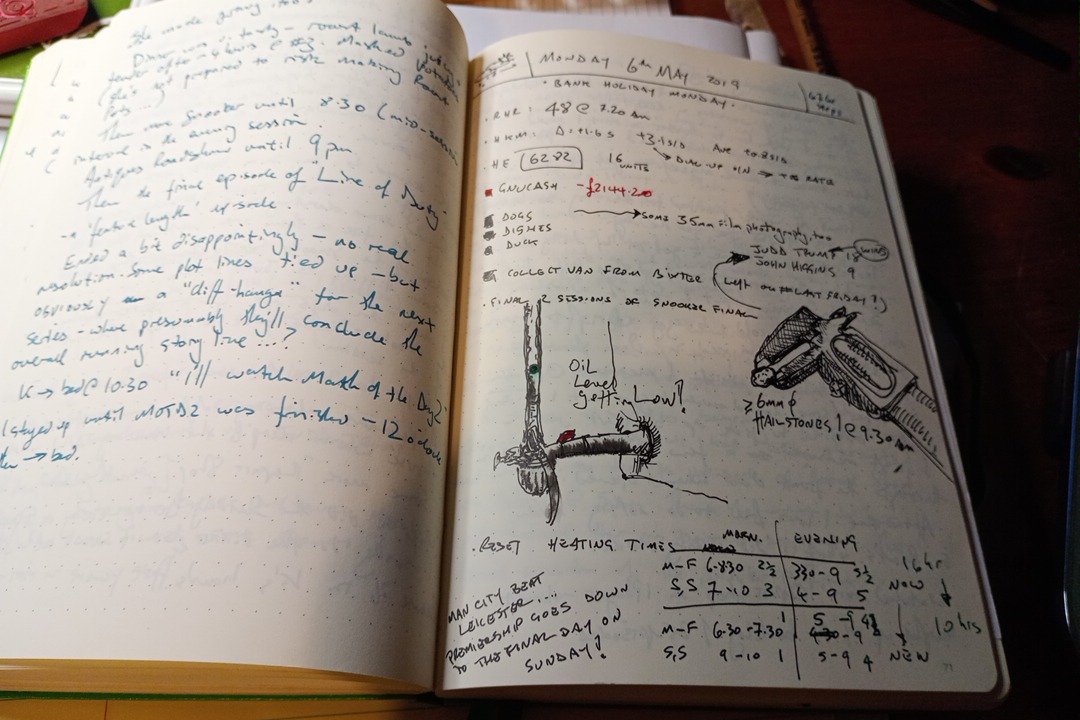 She made gravy too?
Dinner was tasty - roast lamb,
tender after ~4 hours @ Mashed potatoes
(she's not prepared to risk making roast
pots...)
Then more snooker until 8.30 (mid-session
interval in the evening session.
Antiques Roadshow until 9pm
Then the final episode of "Line of Duty"-
-a 'feature length' episode.
Ended a bit disappointingly - no real
resolution. Some plot lines tied up - but
obviously a "cliff-hanger" for the next
series - where presumably they'll conclude the
overall running story line...?
K → bed @ 10.30 "I'll watch Match of the Day2"
I stayed up until MOTD2 was finished - 12 o'clock
then → bed.
MONDAY 6th MAY 2019
· BANK HOLIDAY MONDAY ·
· RHR: 48 @ 7.20 am
· HKM: Δ:+1.6s +3.1s/D Ave +0.8s/D
→ DIAL-UP +IN → +VE RATE
· HE 6282 16 UNITS
GNUCASH -£2144.20
DOGS → some 35mm film photography, too
DISHES
DUCK
JUDD TRUMP 18 WINS
JOHN HIGGINS 9
COLLECT VAN FROM
(left on LAST FRIDAY?)
· FINAL 2 SESSIONS OF SNOOKER FINAL
OIL
Level
getting Low?
≥6mm φ
HAILSTONES! @ 9.30 am
· RESET HEATING TIMES
MORN. EVENING
M-F 6-8.30 2½ 330-9 5½
S,S 7-10 3 4-9 5
16 hr
NOW
M-F 6.30-7.30 1 5 -9 4
S,S 9-10 1 5-9 4
NEW
10 hrs
MAN CITY BEAT
LEICESTER....
PREMIERSHIP GOES DOWN
TO THE FINAL DAY ON
SUNDAY!
71